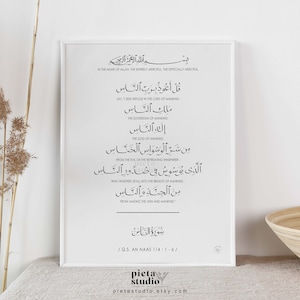 بسم الله الرحمن الرحيم
IN THE NAME OF ALLAH, THE ENTIRELY MERCIFUL, THE ESPECIALLY MERCIFUL.
قُلْ أَعُوذُ بِرَبِّ النَّاسِ
SAY, "I SEEK REFUGE IN THE LORD OF MANKIND,
مَلِكِ النَّاسِ
THE SOVEREIGN OF MANKIND,
إِلَٰهِ النَّاسِ
THE GOD OF MANKIND,
مِن شَرِّ الْوَسْوَاسِ الْخَنَّاسِ
FROM THE EVIL OF THE RETREATING WHISPERER
الَّذِي يُوَسْوِسُ فِي صُدُورِ النَّاسِ
WHO WHISPERS [EVIL] INTO THE BREASTS OF MANKIND,
مِنَ الْجِنَّةِ وَالنَّاسِ
FROM AMONG THE JINN AND MANKIND."
سورة الناس
( Q.S. AN NAAS 114 : 1 - 6 )
pieta
studio
pietastudio.etsy.com